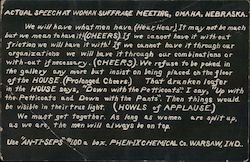 ACTUAL SPEECH AT WOMAN SUFFRAGE MEETING, OMAHA, NEBRASKA.
We will have what men have (Hear, Hear). It may not be much
but we mean to have it (CHEERS). If we cannot have it without
friction we will have it with! If we cannot have it through our
organizations we will have it through our combinations or
with-out if necessary. (CHEERS). We refuse to be poked in
the gallery any more but insist on being placed on the floor
of the HOUSE. (Prolonged Cheers). That drunken loafer
in the HOUSE says, "Down with the Petticoats." I say, "Up
with the Petticoats and Down with the Pants. Then things would
be visible in their true light. (HOWLS of APPLAUSE)
We must get together. As long as women are split up,
as we are, the men will always be on top.
Use "AN-TI-SEPS" $1.00 a box. PHENIX CHEMICAL Co. WARSAW, IND.